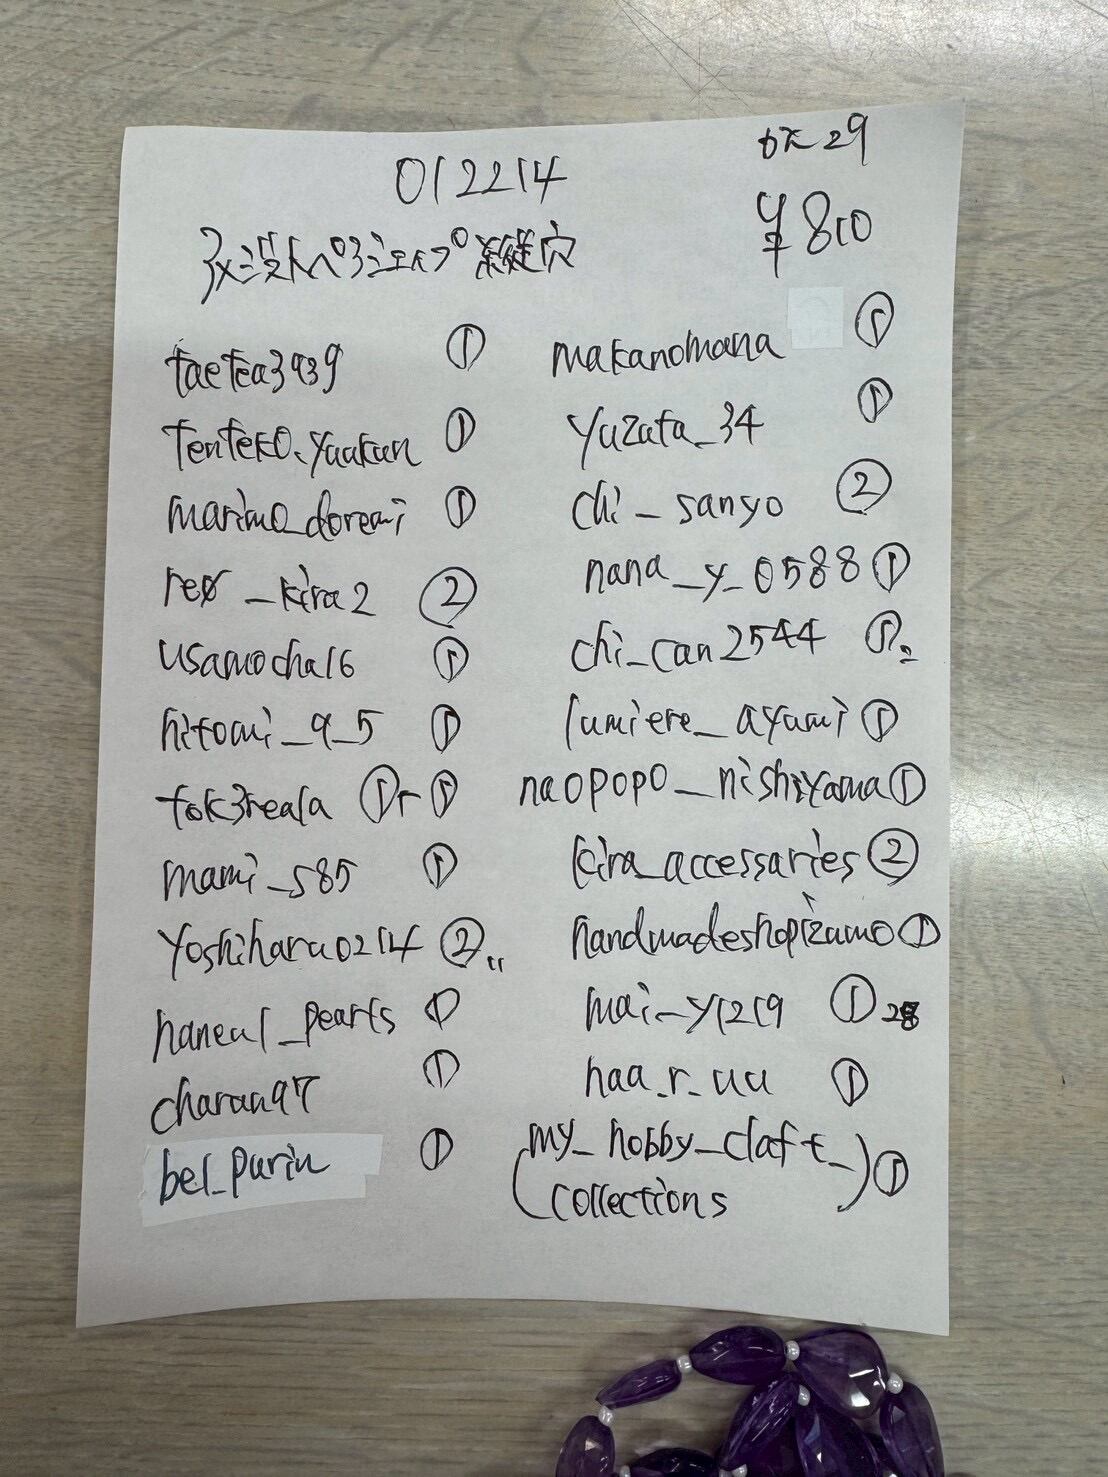 012214
bK 29
¥810
アメジストペアシェイプ 縦穴
taetea3939 ①
tenteko.yuukun ①
marimo_doremi ①
reo_kira2 ②
usamocha16 ①
hitomi_9_5 ①
tok3reala ①+①
mami_s85 ①
yoshiharu0214 ②
haneul_pearls ①
charan97 ①
bel_purin ①
makanomana ①
yuzuta_34 ①
chi_sanyo ②
nana_y_0588 ①
chi_can2544 ①
lumiere_ayumi ①
naopopo_nishiyama ①
kira_accessaries ②
handmadeshopizumo ①
mai_y1219 ① 28
haa_r_uu ①
(my_hobby_claft_
collections) ①